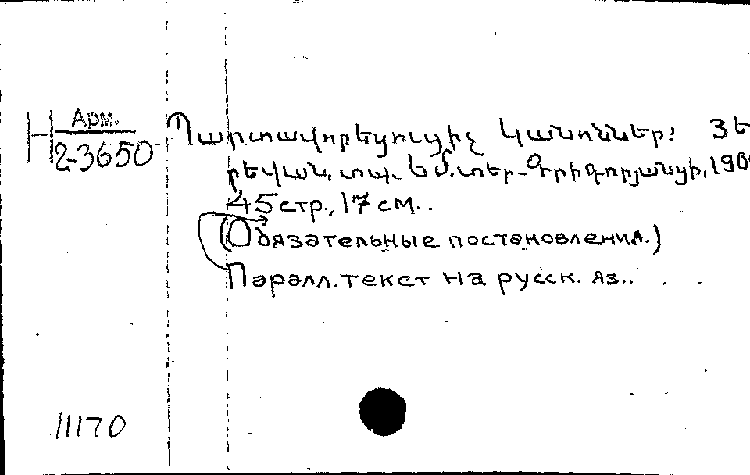 Арм.
Н 2-3650
Պարտավորեցուցիչ կանոններ: Յե
րեվան, տպ. Եմ. տեր-Գրիգորյանցի, 190
45 стр., 17 см..
(Обязательные постановления.)
Паралл. текст на русск. яз..
11170